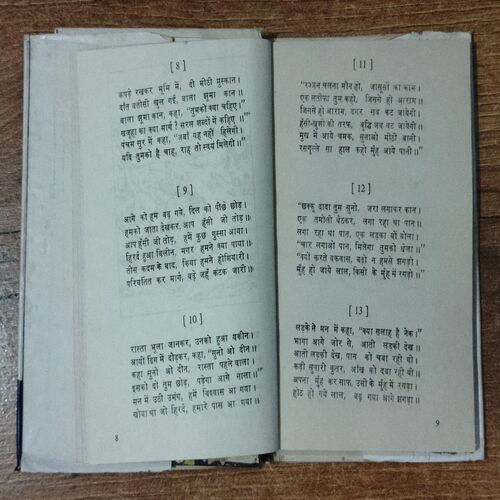 [ 8 ]
कपड़े रखकर भूमि में, दी मीठी मुस्कान।
दाँत बतीसी खुल गई, बाला शुमा कान॥
बाला शुमा कान, कहा, "तुमको क्या चहिए।
खजुहा का क्या मार्ग? सरल शब्दों में कहिए॥
पंचम सुर में कहा, "जबाँ यह नहीं हिलेगी।
यदि तुमको है चाह, राह तो स्वयं मिलेगी॥
[ 9 ]
आगे को हम बढ़ गये, दिल को पीछे छोड़।
हमको जाता देखकर, आप हँसी जो तोड़॥
आप हँसी जो तोड़, हमें कुछ गुस्सा आया।
हिरदै हुआ विलीन, मगर हमने क्या पाया॥
तीस कदम के बाद, किया हमने होशियारी।
परिवतित कर मार्ग, बढ़े जहँ कंटक जारी॥
[ 10 ]
रास्ता भुला जानकर, उनको हुआ यकीन।
आयीं ढिग में दौड़कर, कहा, "सुनो ओ दीन॥
कहा सुनो ओ दीन, रास्ता पहले वाला।
इसको दो तुम छोड़, पड़ेगा आगे नाला॥"
मन में उठी उमंग, हमें विश्वास आ गया।
खोया था जो हिरदै, हमारे पास आ गया॥
8
[ 11 ]
चलना मौन हो, जासूसों का काम।
एक लतीफा तुम कहो, जिससे हो आराम॥
जिससे हो आराम, डगर सब कट जायेगी।
हँसी-खुशी की तरफ, बुद्धि जब बट जायेगी॥
मुख में आये चमक, सुनाओ मीठी बानी।
रसगुल्ले सा हाल कहो मुँह आये पानी॥"
[ 12 ]
"छक्कू दादा तुम सुनो, जरा लगाकर कान।
एक तमोली बैठकर, लगा रहा था पान॥
लगा रहा था पान, एक लड़का यों बोला।
"चार लगाओ पान, मिलेगा तुमको धेला॥"
"क्यों करते बकवास, बढ़ो न हमसे झगड़ो।
मुँह हो जाये लाल, किसी के मुँह में रगड़ो॥
[ 13 ]
लड़के ने मन में कहा, "क्या सलाह है नेक।"
भागा आगे जोर से, आती लड़की देख॥
आती लड़की देख, पान को चबा रही थी।
कड़ी सुपारी कुतर, आँख को दबा रही थी॥
अपना मुँह कर साफ, उसी के मुँह में रगड़ा।
होठ हो गये लाल, बढ़ गया आगे झगड़ा॥
9